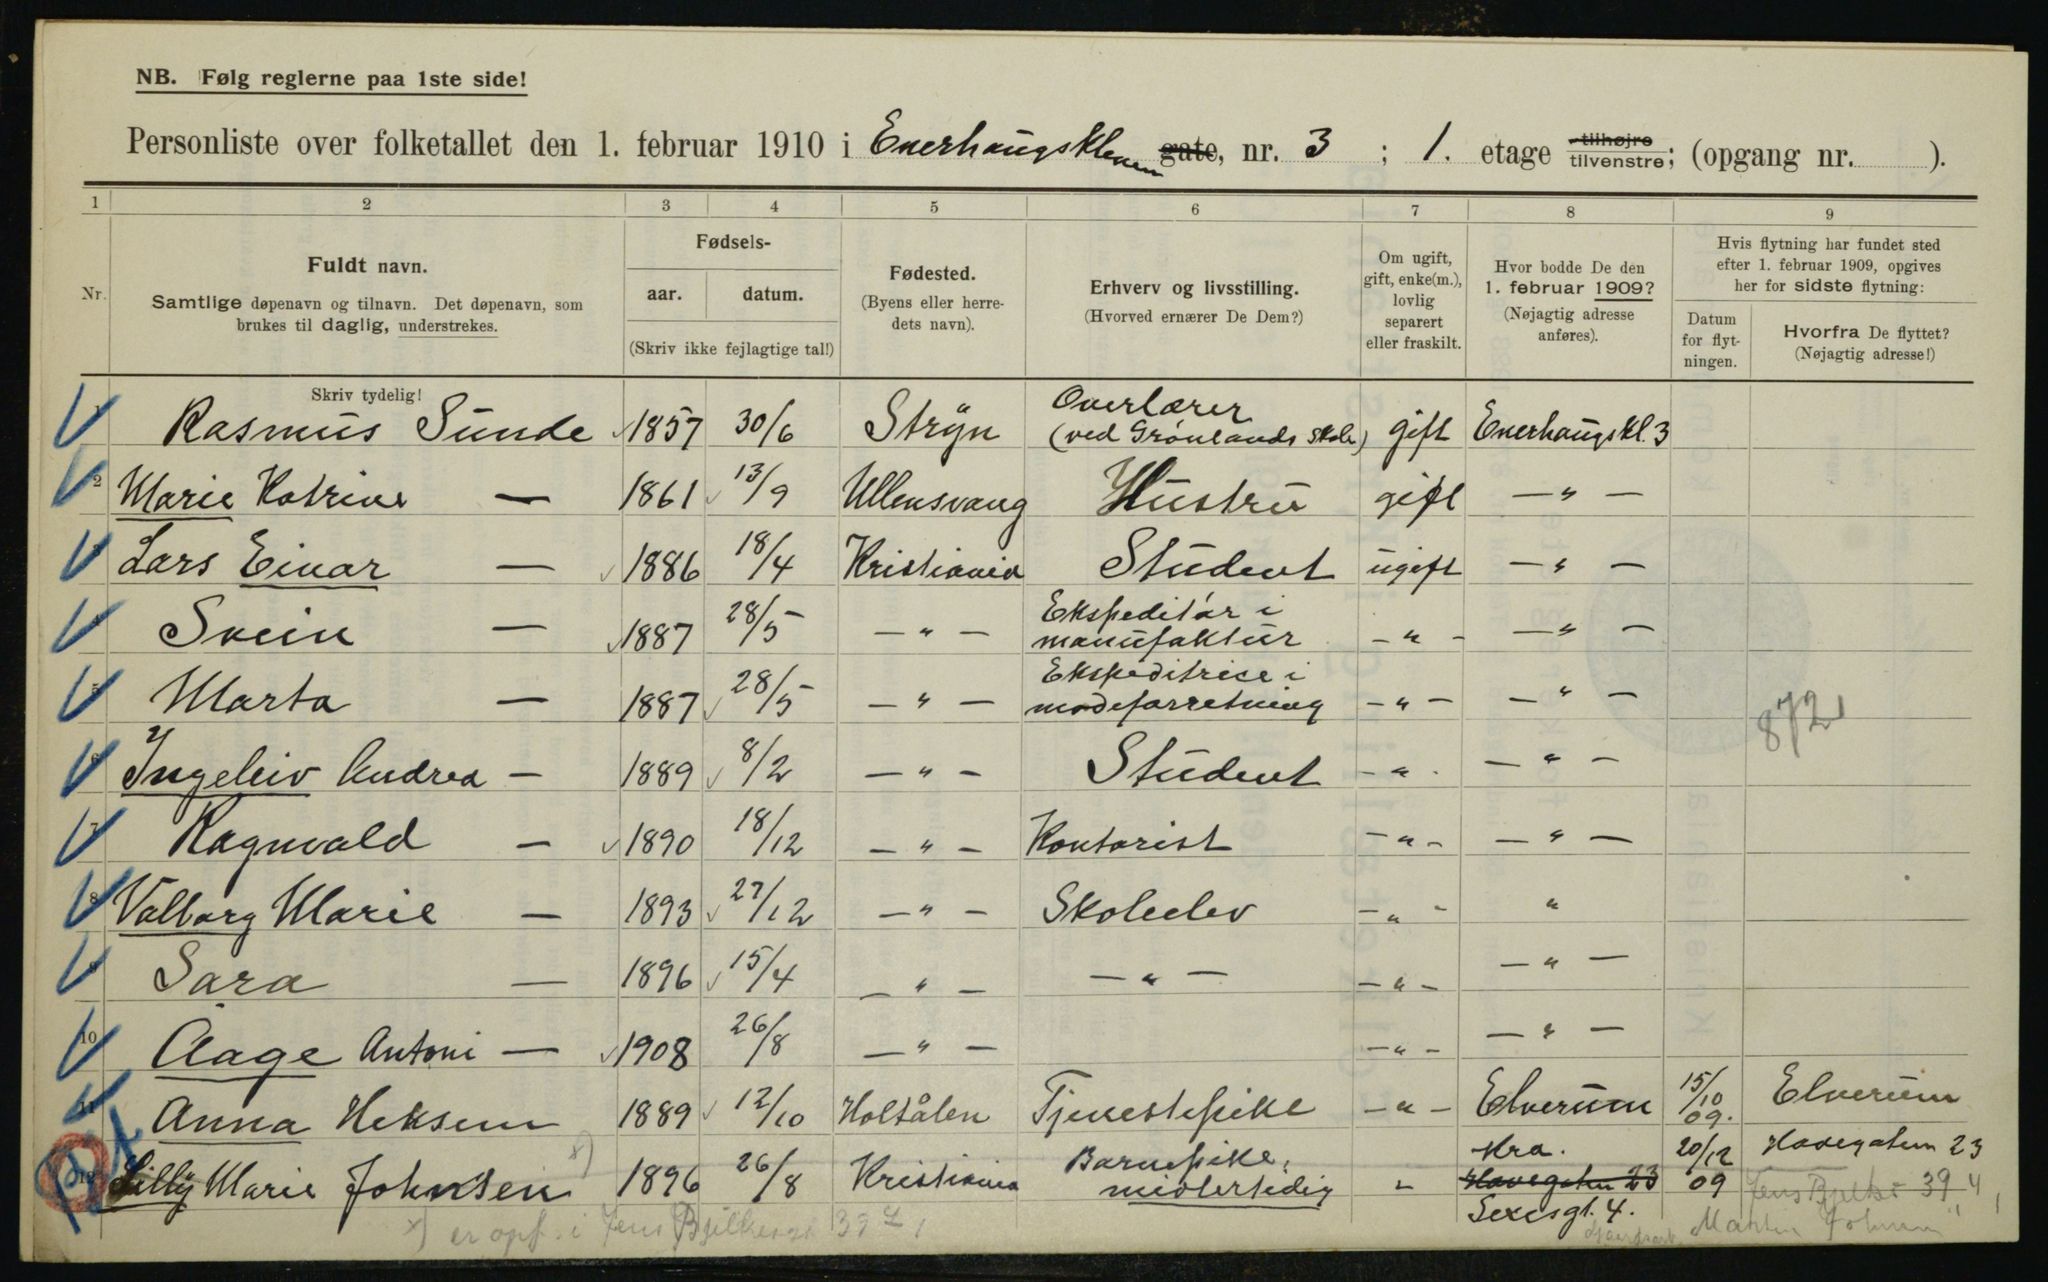 NB. Følg reglerne paa 1ste side!
Personliste over folketallet den 1. februar 1910 i Enerhaugskleven gate, nr. 3 ; 1. etage tilhøjre tilvenstre; (opgang nr. ).
1 2 3 4 5 6 7 8 9
Nr.
Fuldt navn.
Samtlige døpenavn og tilnavn. Det døpenavn, som
brukes til daglig, understrekes.
Skriv tydelig!
Fødsels-
aar. datum.
(Skriv ikke fejlagtige tal!)
Fødested.
(Byens eller herre-
dets navn).
Erhverv og livsstilling.
(Hvorved ernærer De Dem?)
Om ugift,
gift, enke(m.),
lovlig
separert
eller fraskilt.
Hvor bodde De den
1. februar 1909?
(Nøjagtig adresse
anføres).
Hvis flytning har fundet sted
efter 1. februar 1909, opgives
her for sidste flytning:
Datum
for flyt-
ningen.
Hvorfra De flyttet?
(Nøjagtig adresse!)
1 Rasmus Sunde 1857 30/6 Stryn Overlærer (ved Grønlands skole) gift Enerhaugskl. 3
2 Marie Katrine — 1861 13/9 Ullensvang Hustru gift — " —
3 Lars Einar — 1886 18/4 Kristiania Student ugift — " —
4 Svein — 1887 28/5 — " — Ekspeditør i manufaktur — " — — " —
5 Marta — 1887 28/5 — " — Ekspeditrice i modeforretning — " — — " —
6 Ingeleiv Andrea — 1889 8/2 — " — Student — " — — " —
7 Ragnvald — 1890 18/12 — " — Kontorist — " — — " —
8 Valborg Marie — 1893 27/12 — " — Skoleelev — " — "
9 Sara — 1896 15/4 — " — — " — — " — — " —
10 Aage Antoni — 1908 26/8 — " — — " — — " —
11 Anna Heksem 1889 12/10 Holtålen Tjenestepike — " — Elverum 15/10 09. Elverum
12 Lilly Marie Johnsen x) 1896 26/8 Kristiania Barnepike, midlertidig " Kra. Havegaten 23 Sexesgt. 4. 20/12 09 Havegaten 23
Jens Bjelkes 39 4
x) er opf. i Jens Bjelkesgt 39 4
Martin Johnsen
872